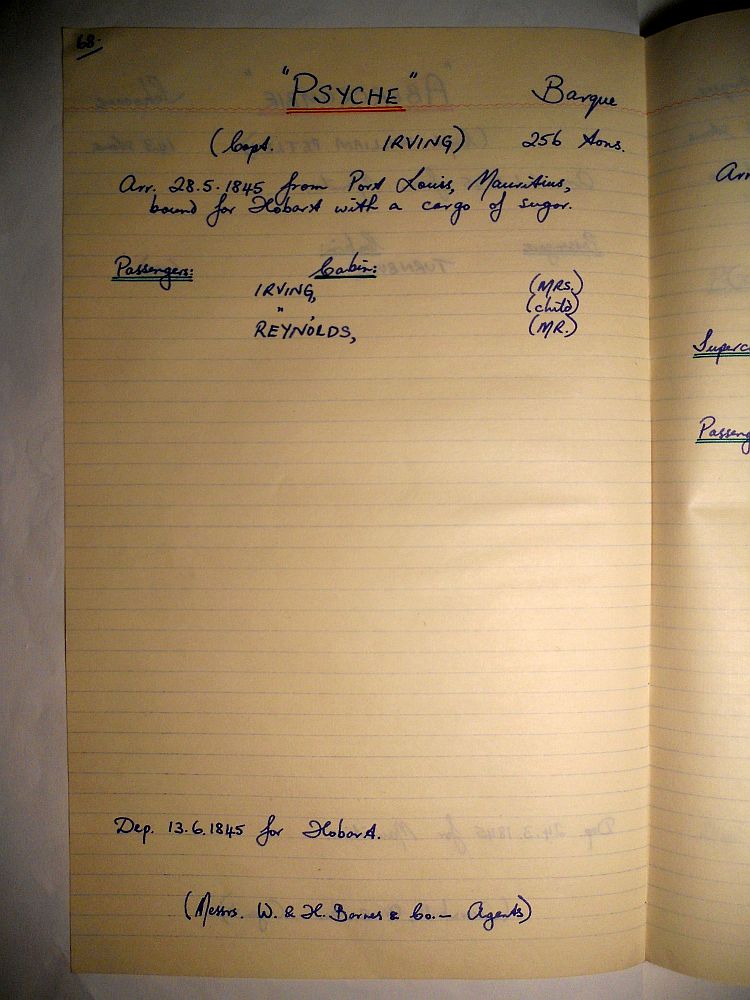 68.
"PSYCHE" Barque
(Capt. IRVING) 256 tons.
Arr. 28.5.1845 from Port Louis, Mauritius,
bound for Hobart with a cargo of sugar.
Passengers: Cabin:
IRVING, (MRS.)
" , (child)
REYNOLDS, (MR.)
Dep. 13.6.1845 for Hobart.
(Messrs. W. & H. Barnes & Co. — Agents)
Arr
Superc
Passeng